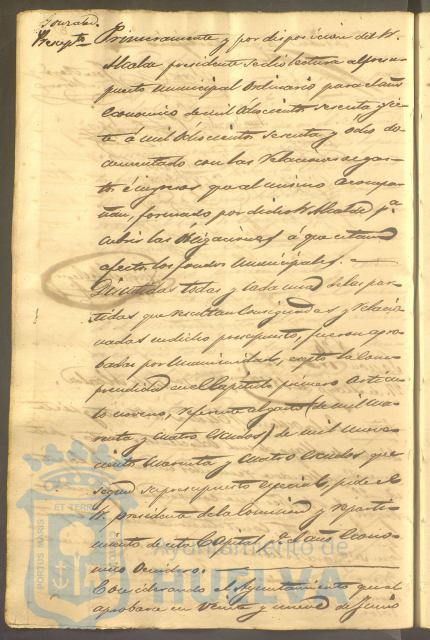 Gonzalez.
Presupto Primeramente y por disposicion del Sr.
Alcalde presidente se dio lectura al presu-
puesto municipal ordinario para el año
economico de mil ochocientos sesenta y sie-
te á mil ochocientos sesenta y ocho do-
cumentado con las relaciones de gas-
tos é ingresos que al mismo acompa-
ñan, formado por dicho Sr. Alcalde pa.
cubrir las obligaciones á que estan
afectos los fondos municipales.
Discutidas todas y cada una de las par-
tidas que resultan consignadas y relacio-
nadas en dicho presupuesto, fueron apro-
badas por unanimidad, escepto la com-
prendida en el Capitulo primero Articu-
lo noveno, referente al gasto (de mil nove-
cientos cuarenta y cuatro escudos que
segun su presupuesto especial, pide el
Sr. presidente de la comision y reparti-
miento de esta Capital pa. el año Econo-
mico venidero.
Considerando el Ayuntamiento que al
aprobar en veinte y uno de Junio
PORTUS MARIS ET TERRAE
Ayuntamiento de
HUELVA